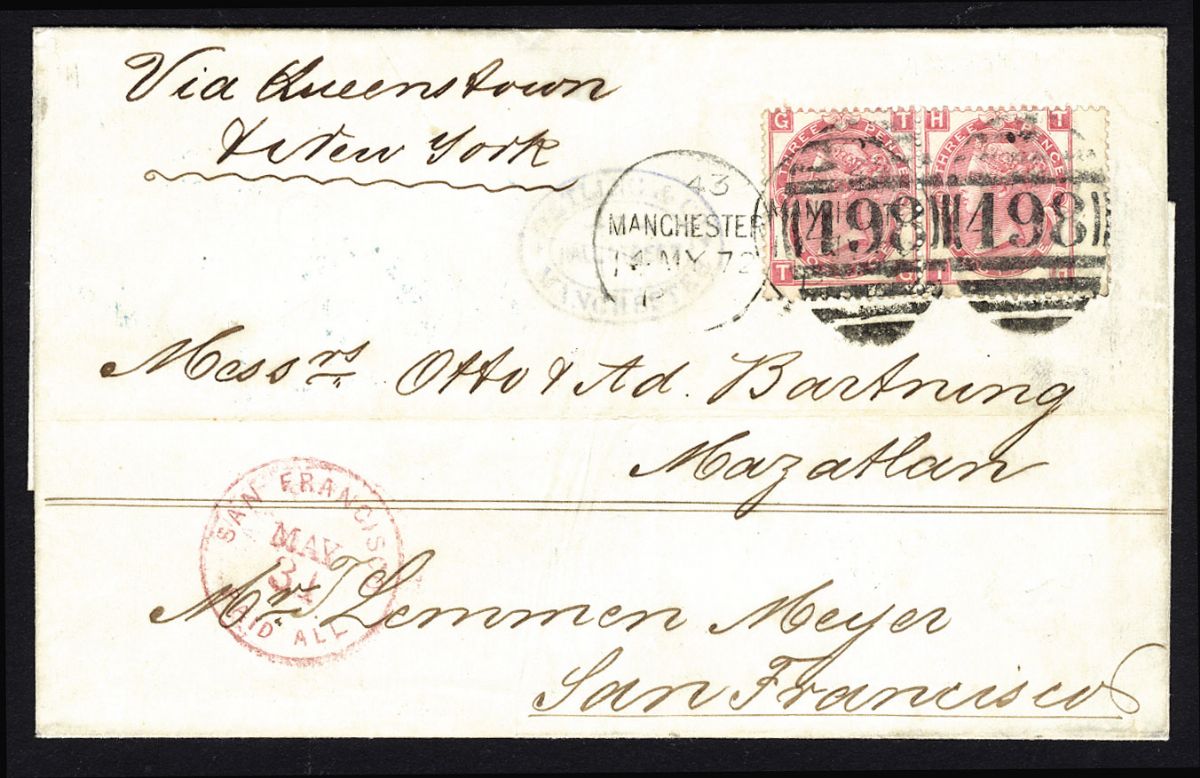 Via Queenstown
& New York
G T H T
THREE PENCE
THREE PENCE
43
MANCHESTER
14 MY 72
MANCHESTER
498 498
T G T H
Messrs Otto & Ad. Bartning
Mazatlan
SAN FRANCISCO
MAY
31
PAID ALL
Mr. T. Lemmen Meyer
San Francisco